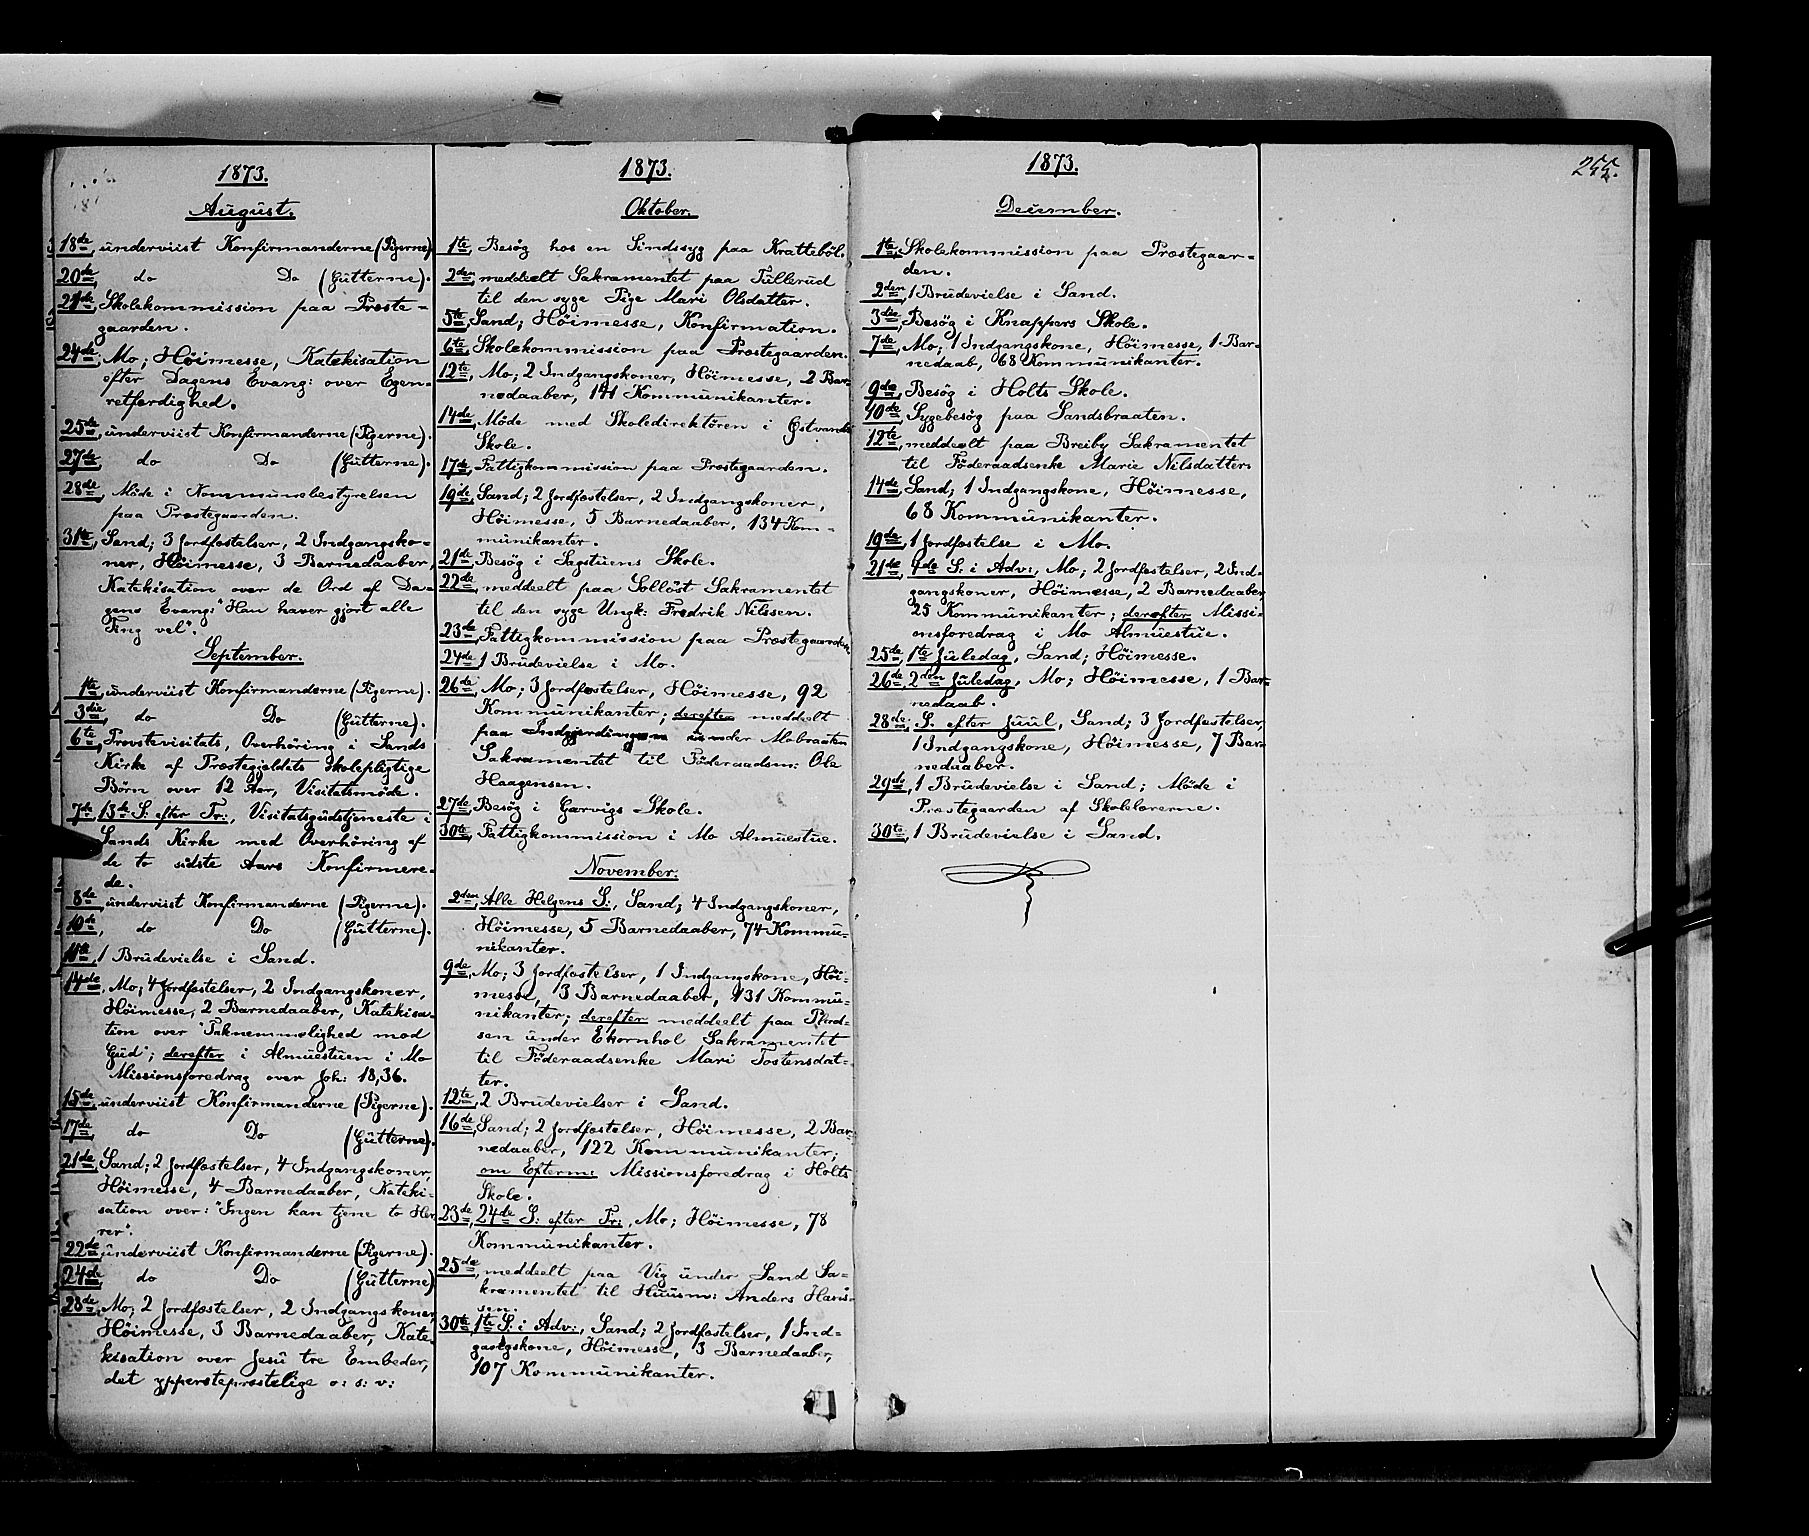 1873.
August.
18de, underviist Konfirmanderne (Pigerne)
20de, do Do (Gutterne).
21de, Skolekommission paa Præste-
gaarden.
24de, Mo; Høimesse, Katekisation
efter Dagens Evang: over Egen-
retfærdighed.
25de, underviist Konfirmanderne (Pigerne).
27de, do Do (Gutterne).
28de, Møde i Kommunebestyrelsen
paa Præstegaarden.
31te, Sand; 3 Jordfæstelser, 2 Indgangsko-
ner, Høimesse, 3 Barnedaaber,
Katekisation over de Ord af Da-
gens Evang: "Han haver gjort alle
Ting vel".
September.
1te, underviist Konfirmanderne (Pigerne).
3die, do Do (Gutterne).
6te, Provstevisitats, Overhøring i Sands
Kirke af Præstegjeldets skolepligtige
Børn over 12 Aar, Visitatsmøde.
7de, 13de S: efter Tr:, Visitatsgudstjeneste i
Sands Kirke med Overhøring af
de to sidste Aars Konfirmere-
de.
8de, underviist Konfirmanderne (Pigerne).
10de, do Do (Gutterne).
11te, 1 Brudevielse i Sand.
14de, Mo; 4 Jordfæstelser, 2 Indgangskoner,
Høimesse, 2 Barnedaaber, Katekisa-
tion over "Taknemmelighed mod
Gud"; derefter i Almuestuen i Mo
Missionsforedrag over Joh: 18,36.
15de, underviist Konfirmanderne (Pigerne).
17de, do Do (Gutterne).
21de, Sand; 2 Jordfæstelser, 4 Indgangskoner,
Høimesse, 4 Barnedaaber, Kateki-
sation over: "Ingen kan tjene to Her
rer".
22de, underviist Konfirmanderne (Pigerne).
24de, do Do (Gutterne)
28de, Mo; 2 Jordfæstelser, 2 Indgangskoner,
Høimesse, 3 Barnedaaber, Kate-
kisation over Jesu tre Embeder,
det ypperstepræstelige o: s: v:
1873.
Oktober.
1te, Besøg hos en Sindssyg paa Kratteböl.
2den, meddeelt Sakramentet paa Tullerud
til den syge Pige Mari Olsdatter.
5te, Sand; Høimesse, Konfirmation.
6te, Skolekommission paa Præstegaarden.
12te, Mo; 2 Indgangskoner, Høimesse, 2 Bar-
nedaaber, 141 Kommunikanter.
14de, Møde med Skoledirektören i
Skole.
17de, Fattigkommission paa Præstegaarden.
19de, Sand; 2 Jordfæstelser, 2 Indgangskoner,
Høimesse, 5 Barnedaaber, 134 Kom-
munikanter.
21de, Besøg i Sagstuens Skole.
22de, meddeelt paa Sollöst Sakramentet
til den syge Ungk: Fredrik Nilssen.
23de, Fattigkommission paa Præstegaarden
24de, 1 Brudevielse i Mo.
26de, Mo; 3 Jordfæstelser, Høimesse, 92
Kommunikanter; derefter meddeelt
paa Indgjerdingen under Mobraaten
Sakramentet til Föderaadsm: Ole
Haagensen.
27de, Besøg i Garvigs Skole.
30te, Fattigkommission i Mo Almuestue.
November.
2den, Alle Helgens S:, Sand; 4 Indgangskoner,
Høimesse, 5 Barnedaaber, 74 Kommu-
nikanter.
9de, Mo; 3 Jordfæstelser, 1 Indgangskone, Høi-
messe, 3 Barnedaaber, 131 Kommu-
nikanter; derefter meddeelt paa
sen under Ekornhol Sakramentet
til Föderaadsenke Mari Tostensdat-
ter.
12te, 2 Brudevielser i Sand.
16de, Sand; 2 Jordfæstelser, Høimesse, 2 Bar-
nedaaber, 122 Kommunikanter;
om Efterm: Missionsforedrag i Holts
Skole.
23de, 24de S: efter Tr:, Mo; Høimesse, 78
Kommunikanter.
25de, meddeelt paa Vig under Sand Sa-
kramentet til Huusm: Anders Hans-
sen.
30te, 1te S: i Adv:, Sand; 2 Jordfæstelser, 1 Ind-
gangskone, Høimesse, 3 Barnedaaber,
107 Kommunikanter.
1873.
December.
1te, Skolekommission paa Præstegaar-
den.
2den, 1 Brudevielse i Sand.
3die, Besøg i Knappers Skole.
7de, Mo; 1 Indgangskone, Høimesse, 1 Bar-
nedaab, 68 Kommunikanter.
9de, Besøg i Holts Skole.
10de, Sygebesøg paa Sandsbraaten.
12te, meddeelt paa Breiby Sakramentet
til Föderaadsenke Marie Nilsdatter.
14de, Sand; 1 Indgangskone, Høimesse,
68 Kommunikanter.
19de, 1 Jordfæstelse i Mo.
21de, 4de S: i Adv:, Mo; 2 Jordfæstelser, 2 Ind-
gangskoner, Høimesse, 2 Barnedaaber
25 Kommunikanter; derefter Missi-
onsforedrag i Mo Almuestue.
25de, 1te Juledag, Sand; Høimesse.
26de, 2den Juledag, Mo; Høimesse, 1 Bar-
nedaab.
28de, S. efter Juul, Sand; 3 Jordfæstelser,
1 Indgangskone, Høimesse, 7 Bar-
nedaaber.
29de, 1 Brudevielse i Sand; Møde i
Præstegaarden af Skolelærerne.
30te, 1 Brudevielse i Sand.
255.